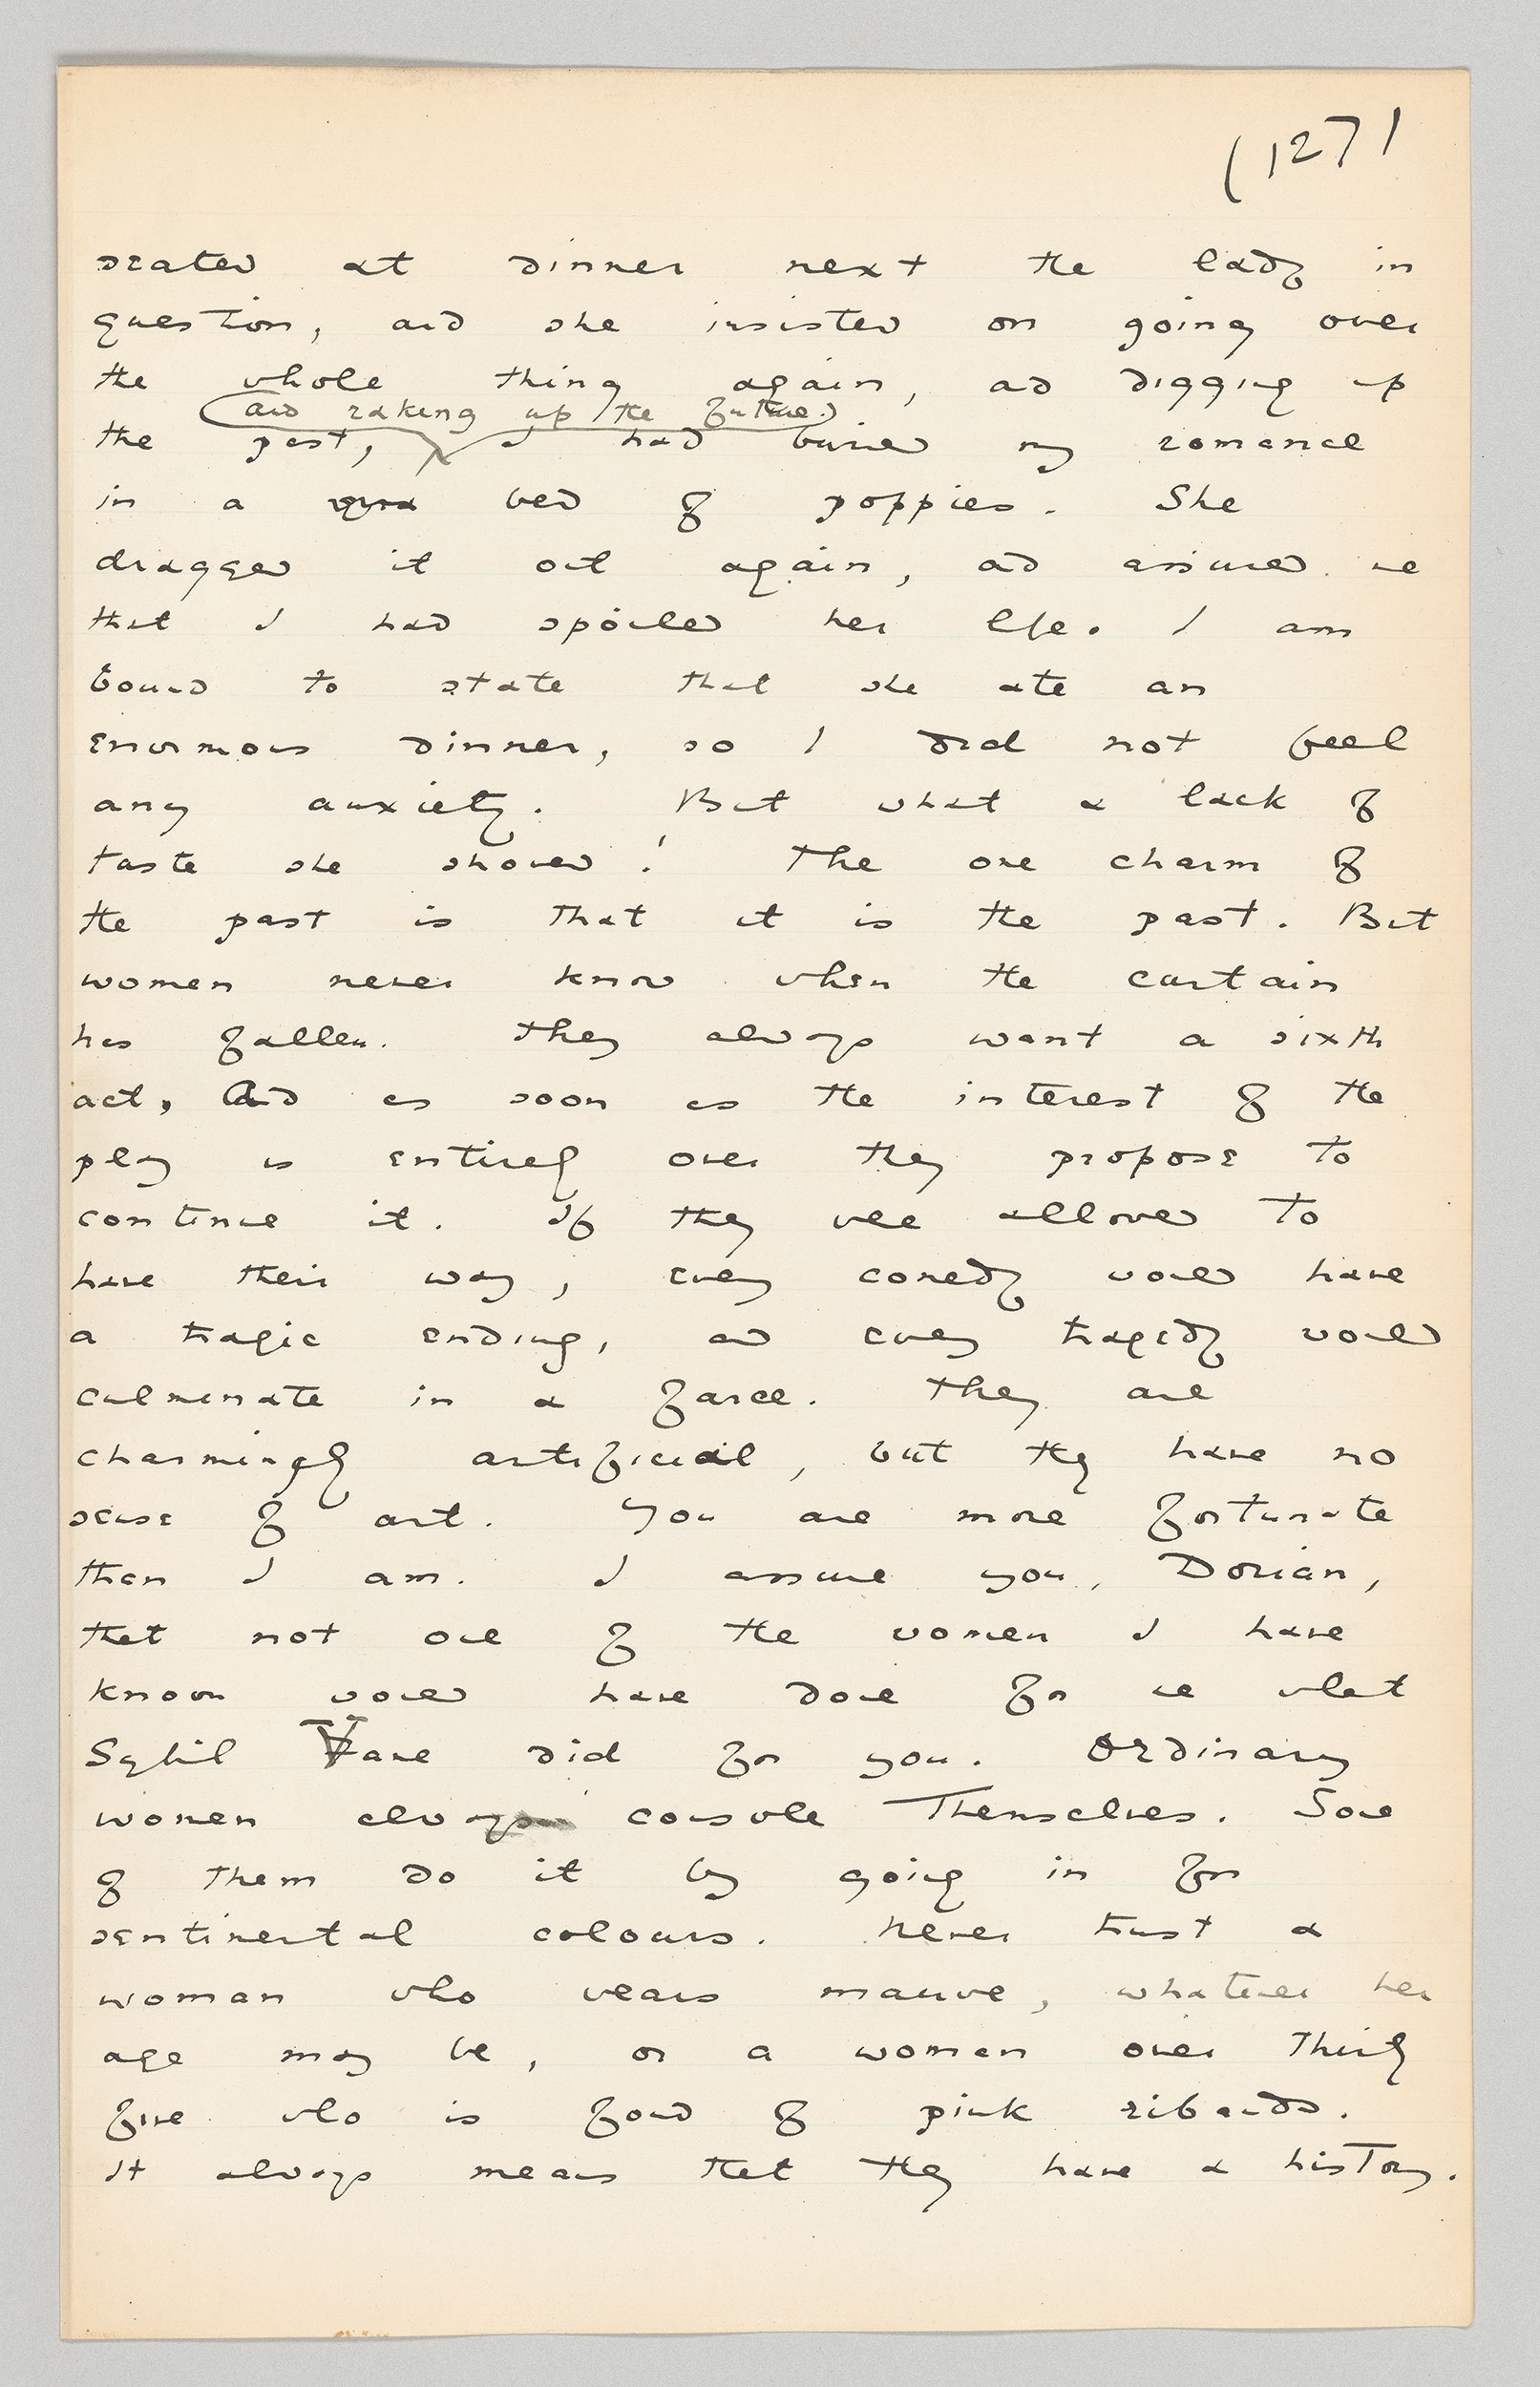 (127)
seated at dinner next the lady in
question, and she insisted on going over
the whole thing again, and digging up
and raking up the future.
the past, I had buried my romance
in a bed of poppies. She
dragged it out again, and assured me
that I had spoiled her life. I am
bound to state that she ate an
enormous dinner, so I did not feel
any anxiety. But what a lack of
taste she showed! The one charm of
the past is that it is the past. But
women never know when the curtain
has fallen. They always want a sixth
act, and as soon as the interest of the
play is entirely over they propose to
continue it. If they were allowed to
have their way, every comedy would have
a tragic ending, and every tragedy would
culminate in a farce. They are
charmingly artificial, but they have no
sense of art. You are more fortunate
than I am. I assure you, Dorian,
that not one of the women I have
known would have done for me what
Sybil Vane did for you. Ordinary
women always console themselves. Some
of them do it by going in for
sentimental colours. Never trust a
woman who wears mauve, whatever her
age may be, or a woman over thirty
five who is fond of pink ribands.
It always means that they have a history.